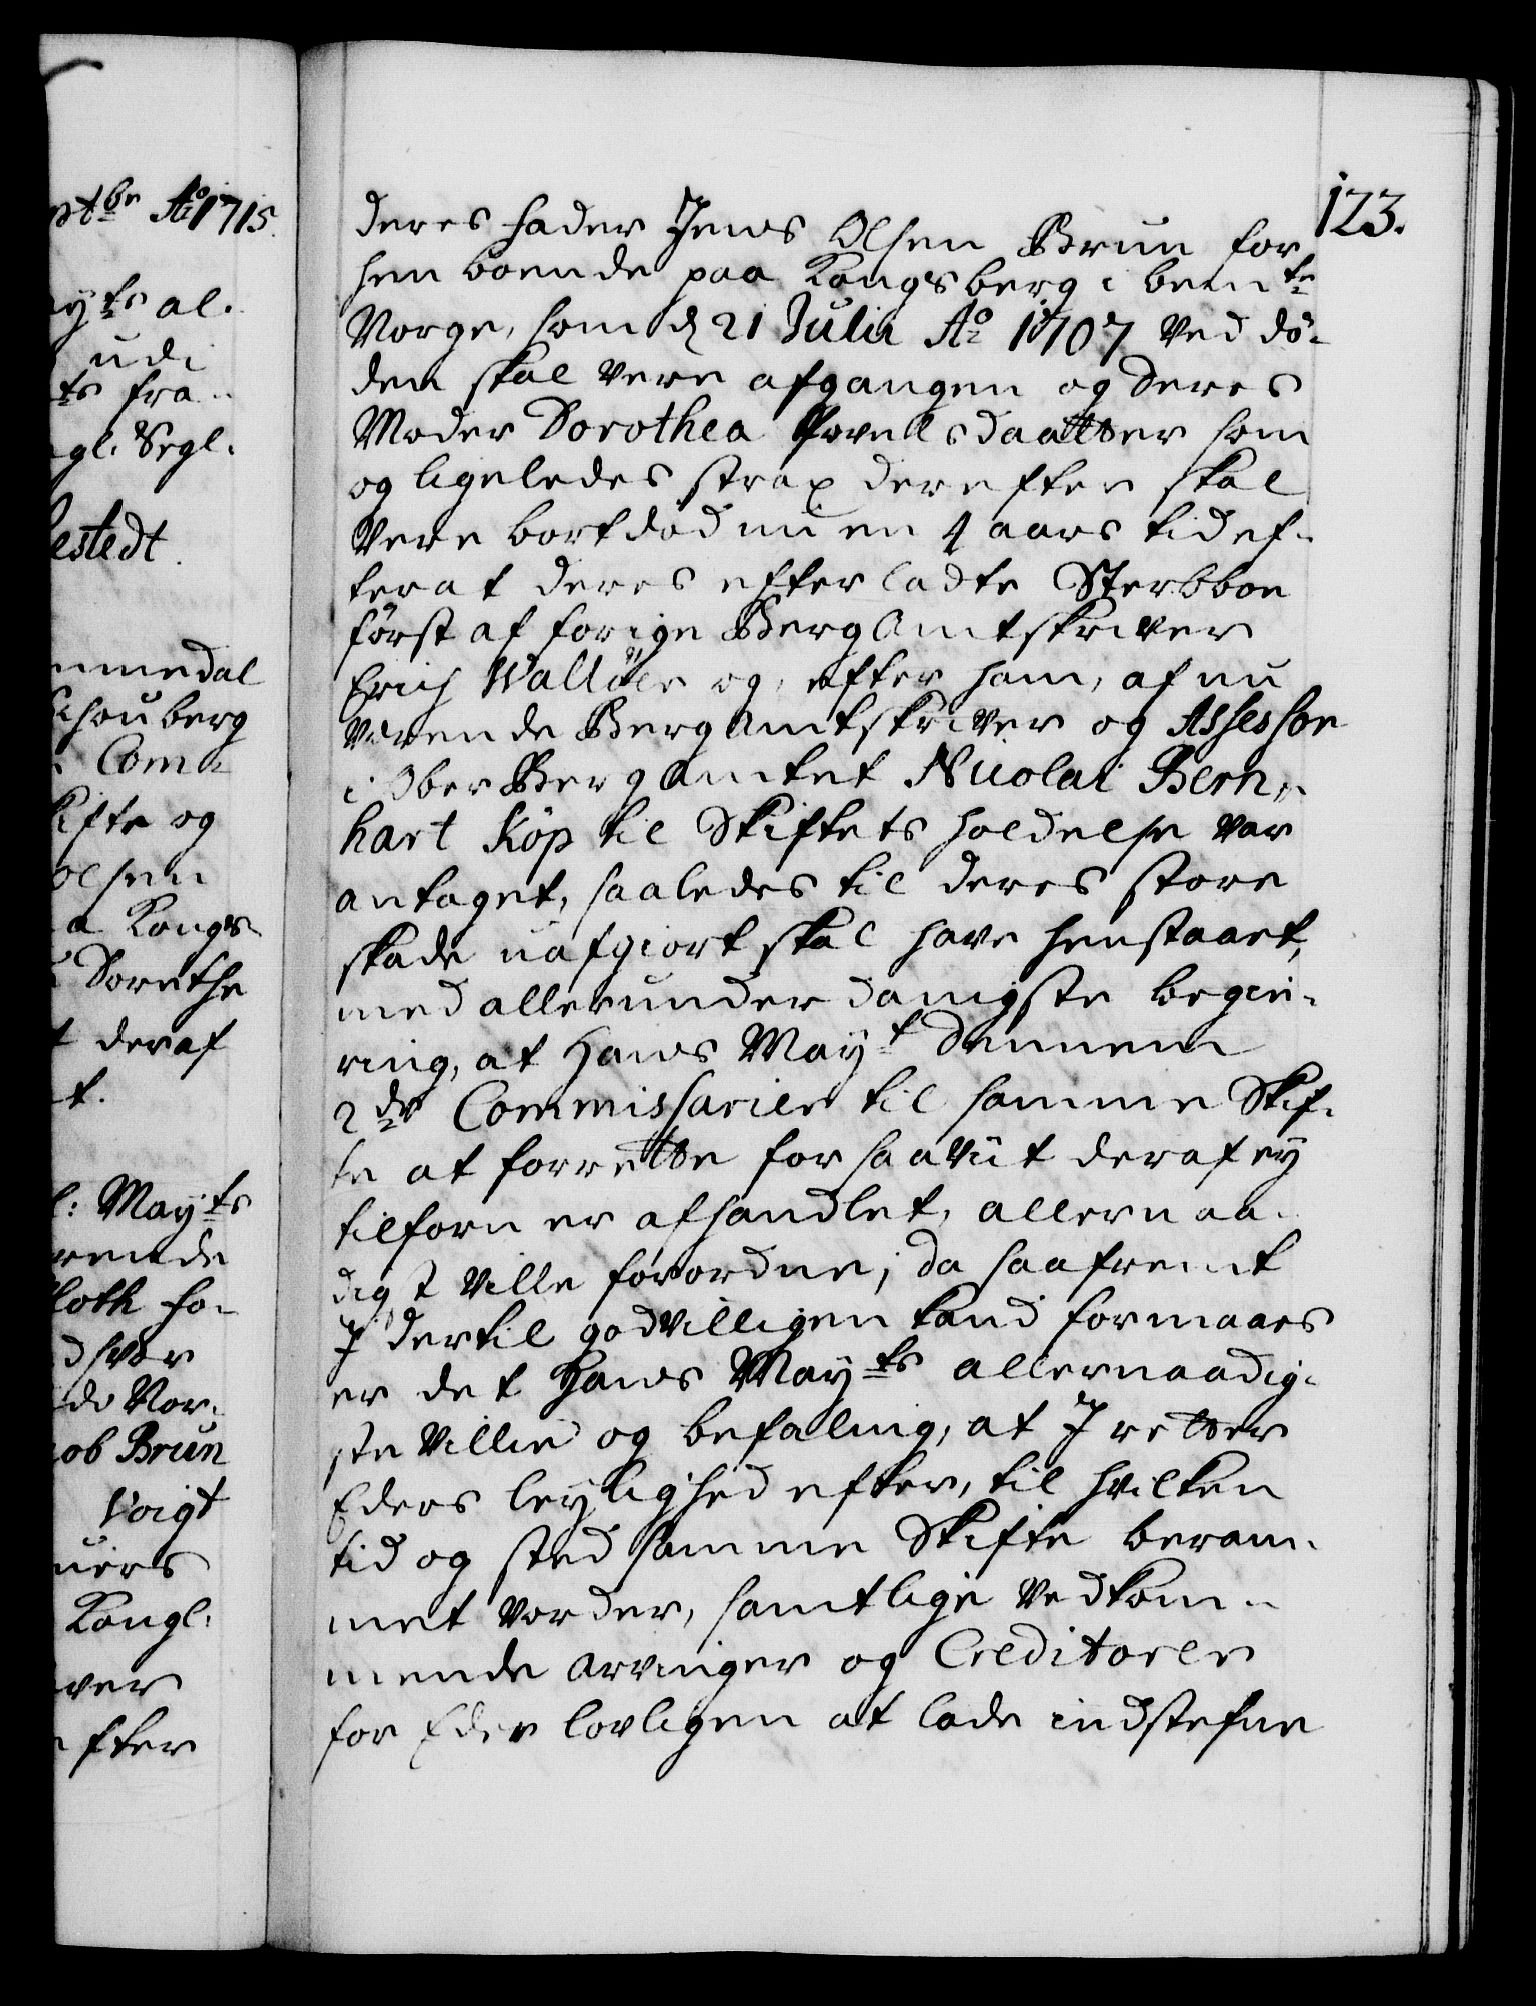 ptbr Ao 1715.
ayts al.
udi
ts fra
gl. Segl.
estedt.
nmedal
Schouberg
Com
kifte og
olsen
a Kongs
Dorethe
t deraf
t.
l: Mayts
rende
loth ha
d hvor
do Nor.
cob Brun
Voigt
uers
Kongl.
ver
efter
123.
deres fader Jens Olsen Brun for
hen boende paa Kongsberg i bemte
Norge, som d 21 Julii Ao 1707 ved dö-
den skal vere afgangen og deres
Moder Dorothea Povelsdaatter som
og ligeledes strax derefter skal
vere bortdöd nu en 4 aars tid ef-
terat deres efterladte Sterbboe
först af forige BergAmtskriver
Erich Wallöer og, efter ham, af nu
verende BergAmtskriver og Assessor
i Ober BergAmtet Nicolai Bern-
hart Köp til Skiftets holdelse var
antaget, saaledes til deres store
skade uafgiort skal have henstaaet,
med allerunderdanigste begie-
ring, at Hans Mayt dennem
2de Commissarier til samme Skif-
te at forrette for saavit deraf ey
tilforn er afhandlet, allernaa-
digst ville forordne; da saafremt
I dertil godvilligen kand formaaes
er det Hans Mayts allernaadig-
ste Villie og befaling, at I retter
Eders leylighed efter, til hvilken
tid og sted samme Skifte beram-
met vorder, samtlige vedkom-
mende arvinger og Creditorer
for Eder lovligen at lade indstefne